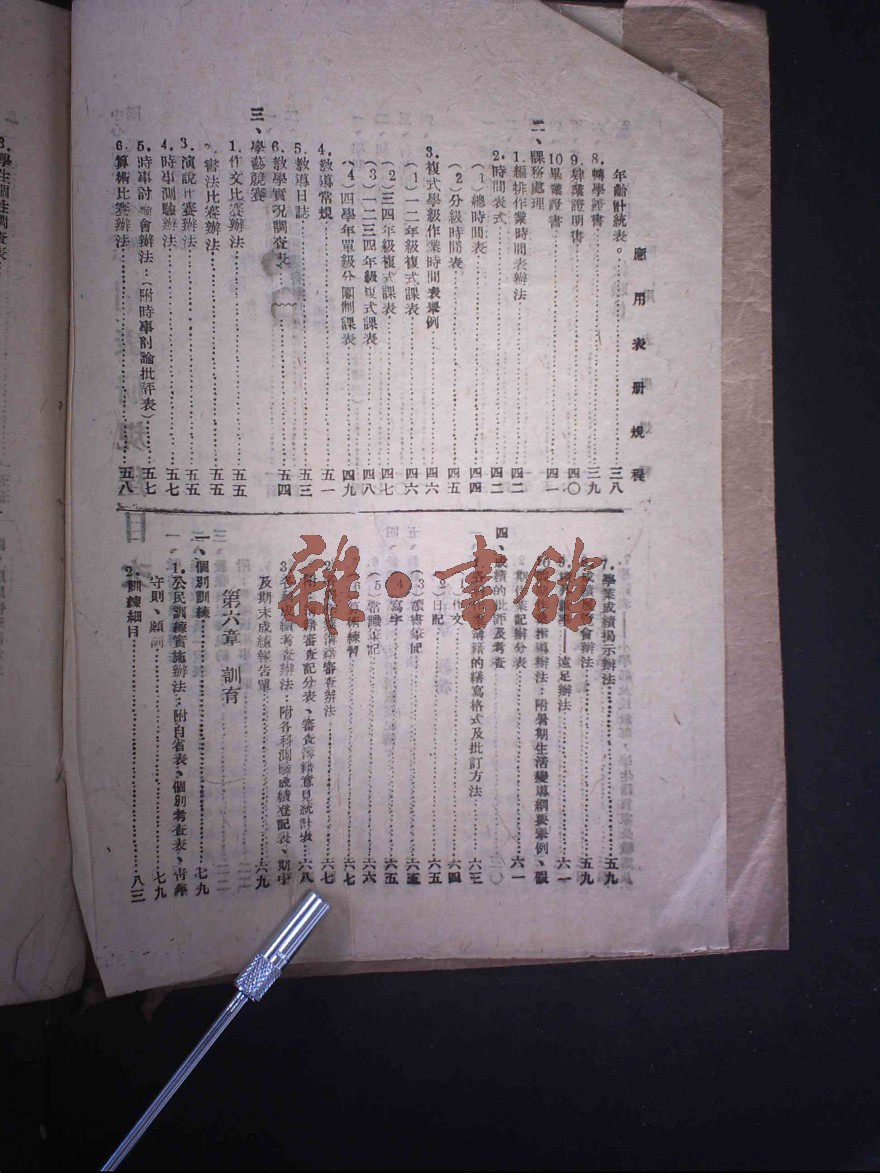 應用表册規程
年齡計統表。……三八
8.轉學證書……三九
9.肄業證明書……四〇
10畢業證書……四一
二、課務處理
1.編排作業時間表辦法……四二
2.時間表式……四二
(1)總時間表……四四
(2)分級時間表……四五
3.複式學級作業時間表舉例……四六
(1)一二年級複式課表……四六
(2)三四年級複式課表……四七
(3)一二三四年級複式課表……四八
(4)四學年單級分團制課表……四九
4.教導常規……五一
5.教導日誌……五三
6.教學實況調查表……五四
三、學藝競賽
1.作文比賽辦法……五五
2.書法比賽辦法……五五
3.演說比賽辦法……五五
4.時事測驗辦法……五七
5.時事討論會辦法:(附時事討論批評表)……五七
6.算術比賽辦法……五八
7.學業成績揭示辦法……五九
成績展覽會辦法……五九
遠足辦法……六一
指導辦法:附暑期生活變導綱要舉例、假
期作業記辦分表……六一
四、成績的批評及考查
簿籍的繕寫格式及批訂方法……六三
作文……六四
(2)日記……六五
(3)讀書筆記……六五
(4)寫字……六五
(5)常識筆記……六六
算術練習……六七
簿籍審查辦法……六七
附簿籍審查記分表、審查簿籍意見統計表……六八
3.各科成績考查辦法:附各科測驗成績登記表、期中
及期末成績報告單……六九
第六章 訓育
一、個別訓練……七九
1.公民訓練實施辦法:附自省表、個別考查表、青年
守則、願詞……七九
2.訓練細目……八三
8.學生個性調查表
雜·書館